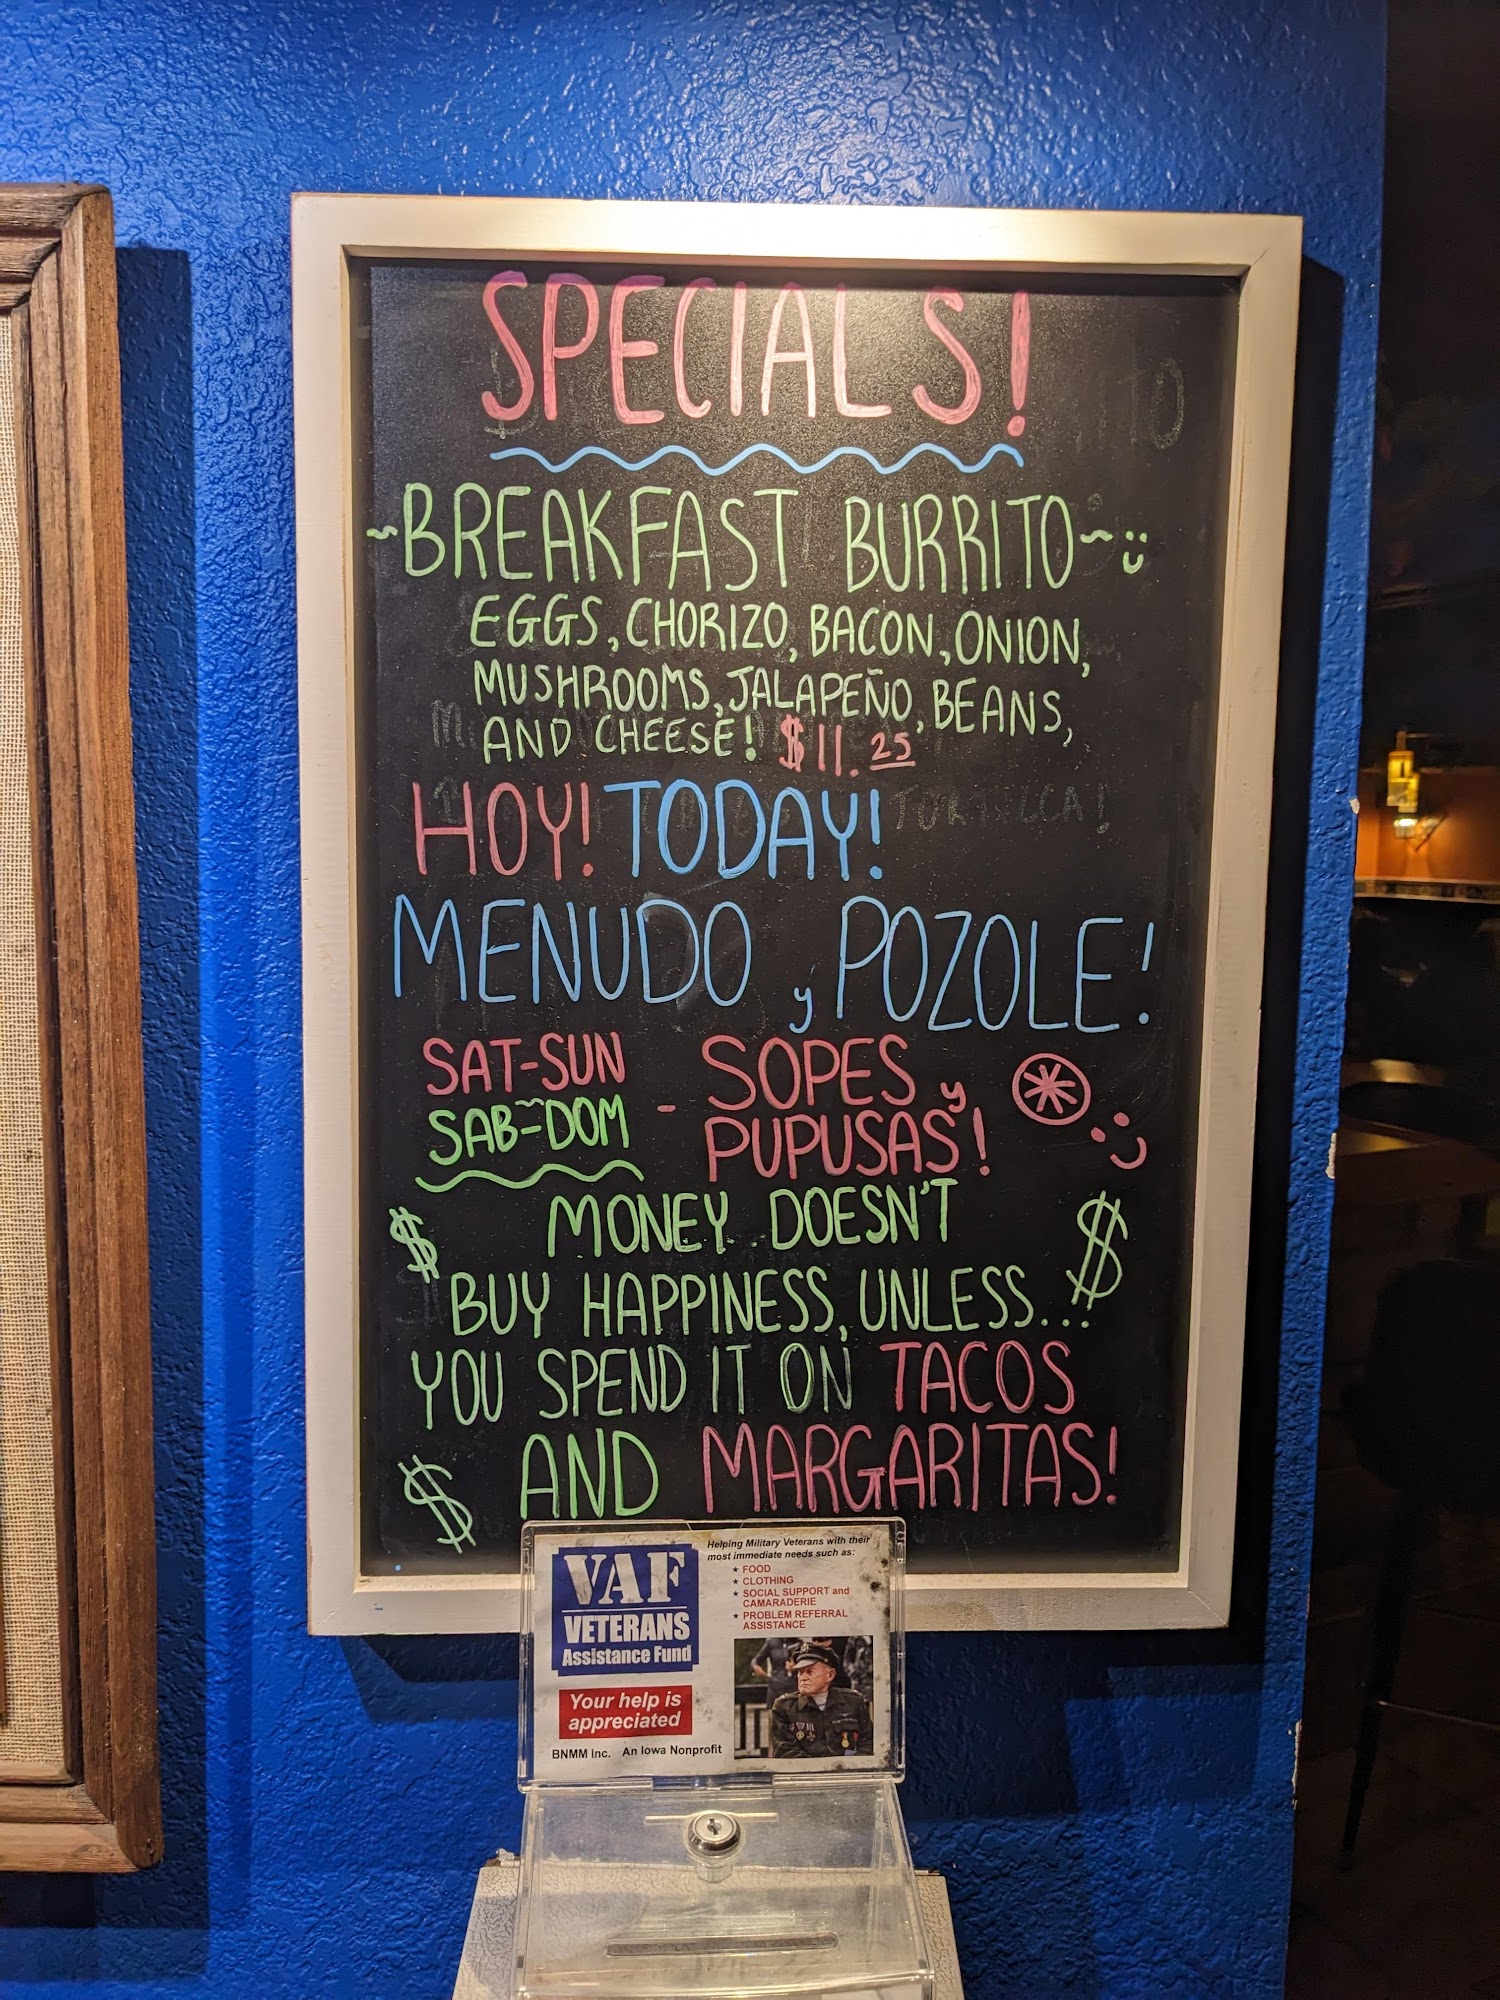 SPECIALS!
~BREAKFAST BURRITO~
EGGS, CHORIZO, BACON, ONION,
MUSHROOMS, JALAPEÑO, BEANS,
AND CHEESE! $11.25
HOY! TODAY!
MENUDO y POZOLE!
SAT-SUN - SOPES y
SAB-DOM PUPUSAS!
$ MONEY DOESN'T $
BUY HAPPINESS, UNLESS...
YOU SPEND IT ON TACOS
$ AND MARGARITAS!
VAF
VETERANS
Assistance Fund
Your help is
appreciated
BNMM Inc. An Iowa Nonprofit
Helping Military Veterans with their
most immediate needs such as:
★ FOOD
★ CLOTHING
★ SOCIAL SUPPORT and
CAMARADERIE
★ PROBLEM REFERRAL
ASSISTANCE